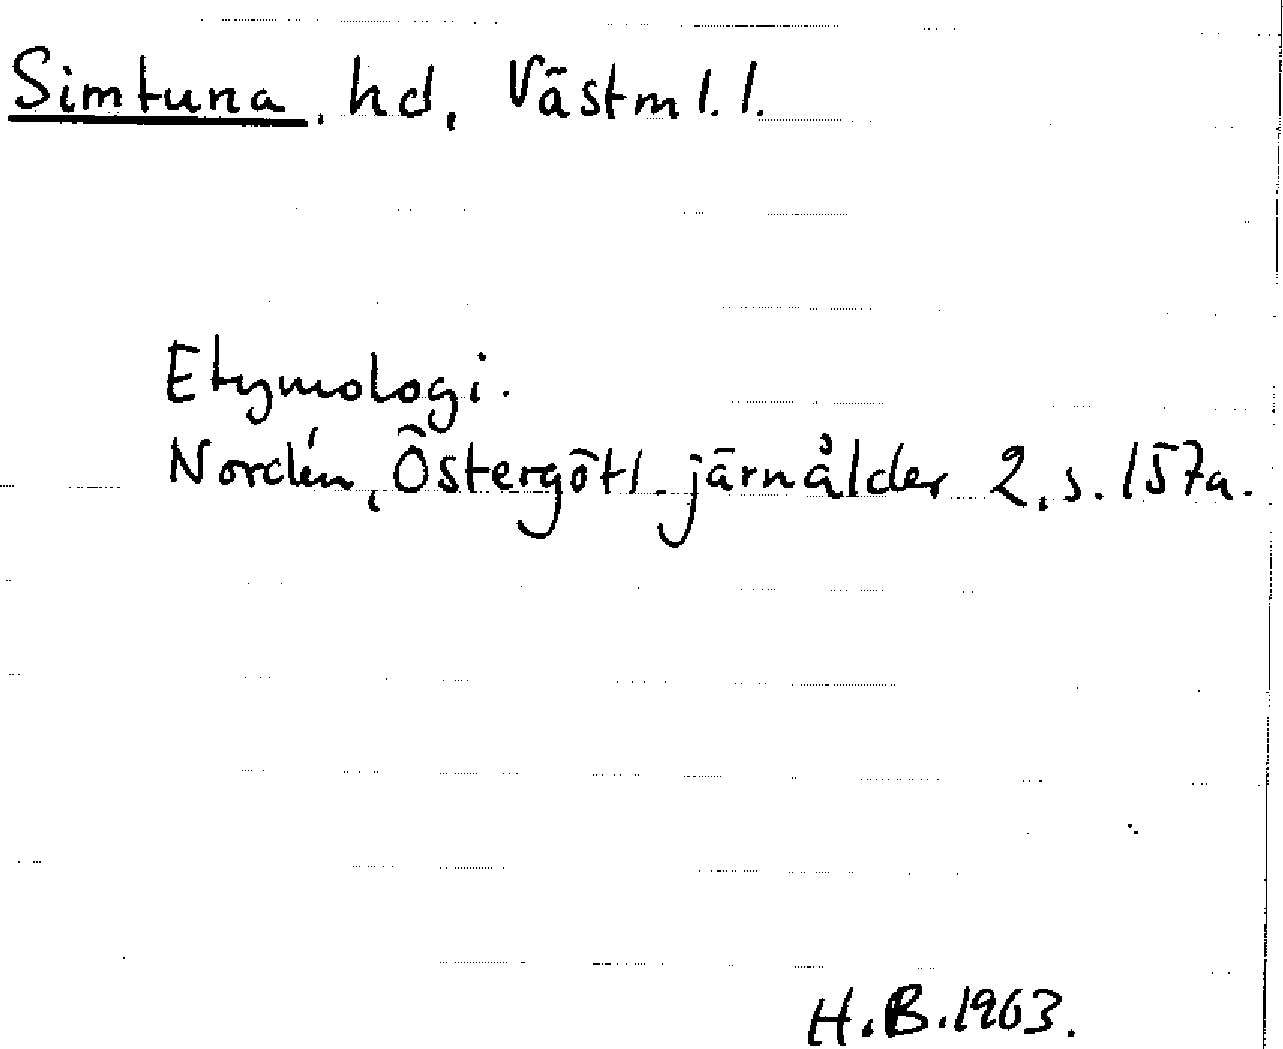 Simtuna, hd, Västml. l.
Etymologi.
Nordén, Östergötl. järnålder 2, s. 157a.
H.B. 1963.